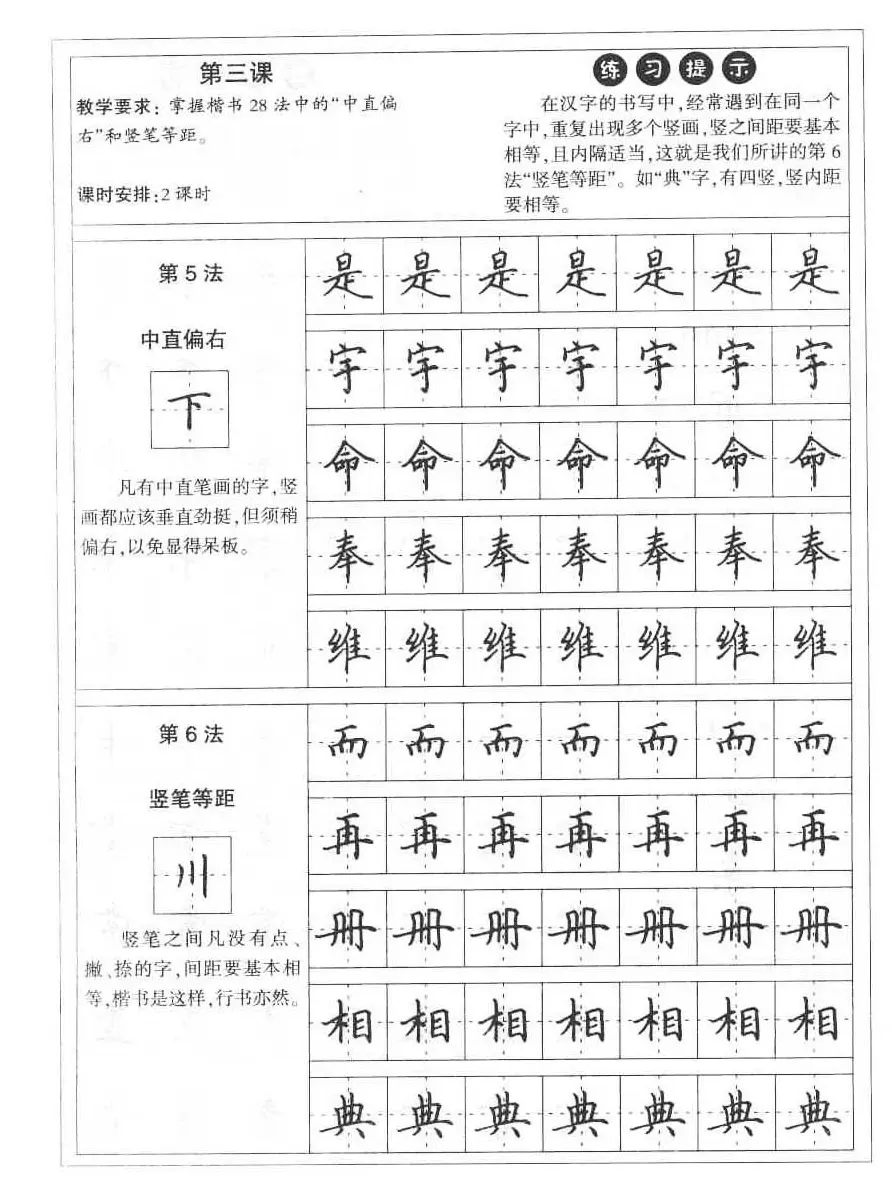 第三课
教学要求：掌握楷书28法中的“中直偏
右”和竖笔等距。
课时安排：2课时
练习提示
在汉字的书写中，经常遇到在同一个
字中，重复出现多个竖画，竖之间距要基本
相等，且内隔适当，这就是我们所讲的第6
法“竖笔等距”。如“典”字，有四竖，竖内距
要相等。
第5法
中直偏右
下
凡有中直笔画的字，竖
画都应该垂直劲挺，但须稍
偏右，以免显得呆板。
是是是是是是是
宇宇宇宇宇宇宇
命命命命命命命
奉奉奉奉奉奉奉
维维维维维维维
第6法
竖笔等距
川
竖笔之间凡没有点、
撇、捺的字，间距要基本相
等，楷书是这样，行书亦然。
而而而而而而而
再再再再再再再
册册册册册册册
相相相相相相相
典典典典典典典